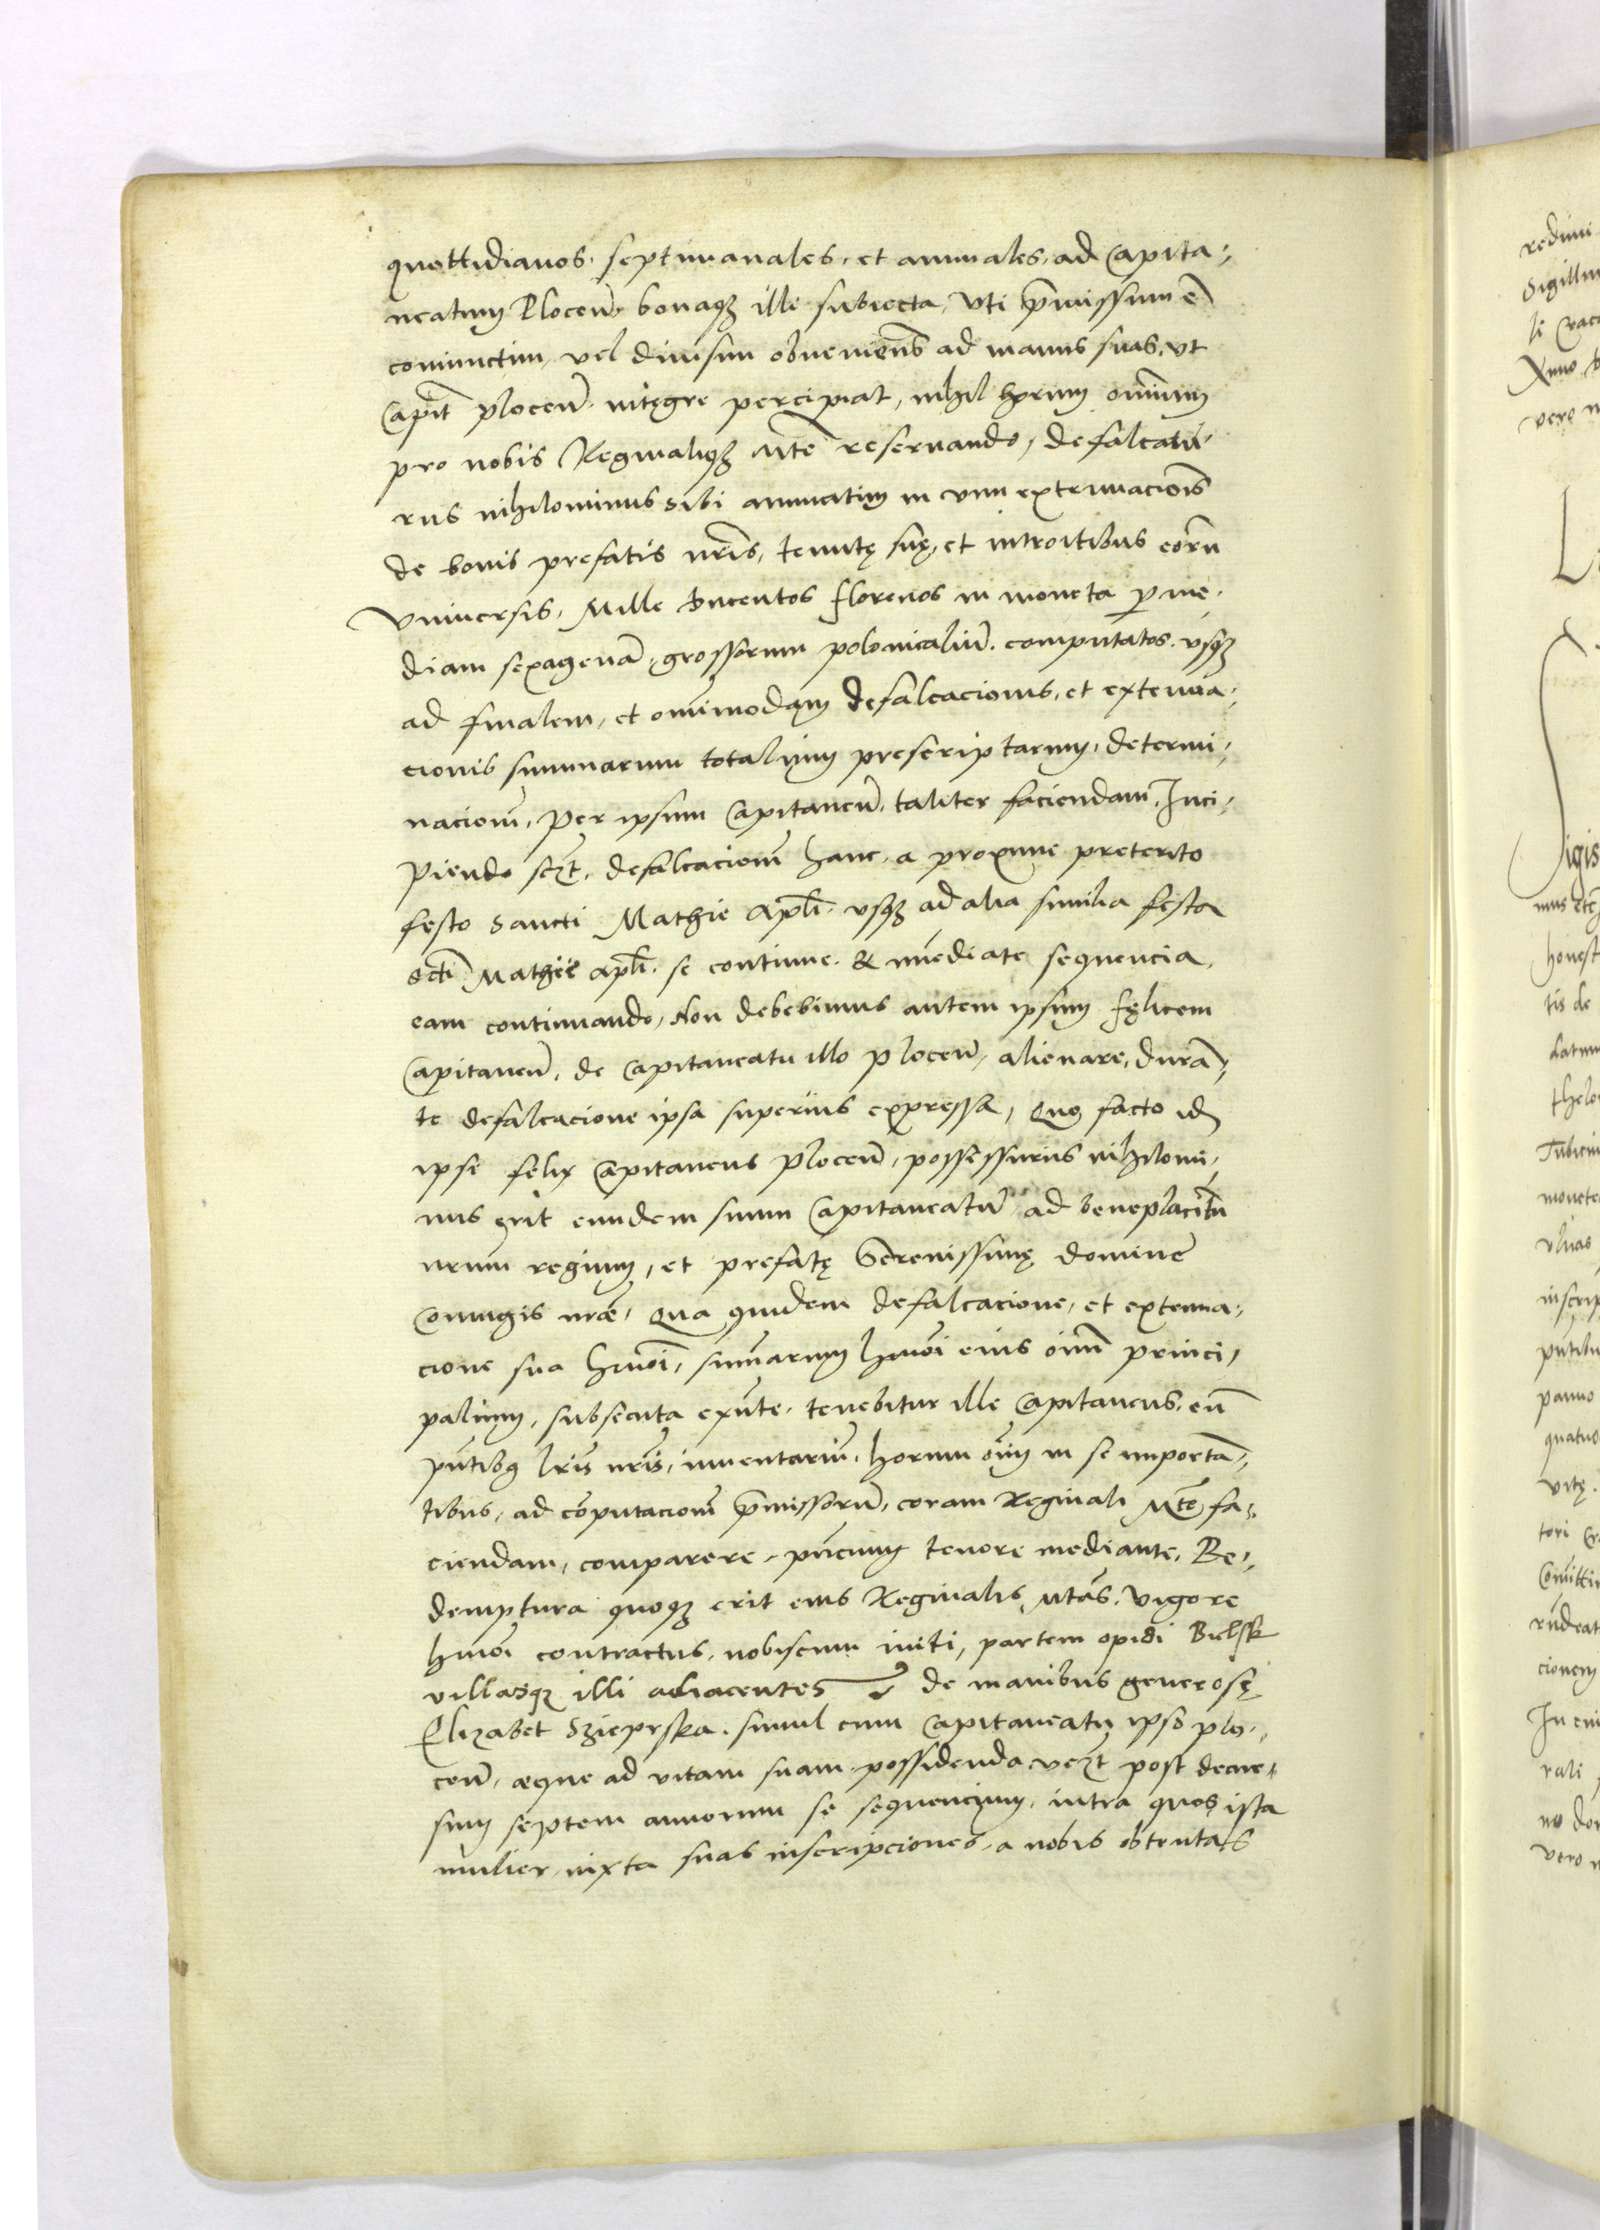 quottidianos, septimanales, et annuales, ad Capita-
neatum Plocen̄, bonaqȝ illi subiecta, Uti p̄missum ē
coniunctim, vel diuisim obuenien̄s ad manus suas, ut
Capit̄ plocen̄. integre percipiat, nihil horum omnium
pro nobis Reginaliqȝ Mte reseruando, defalcatu-
rus nihilominus sibi annuatim in vim extenuacionis
de bonis prefatis nr̄is, tenutę suę, et introitibus eorū
Vniuersis, Mille Ducentos florenos in moneta per me-
diam sexagenā, grossorum polonicaliū computatos, usqȝ
ad finalem, et omnimodam defalcacionis, et extenua-
cionis summarum totalium prescriptarum, determi-
nacionē, per ipsum Capitaneū, taliter faciendam, Inci-
piendo sc̄ȝt, defalcacionē hanc, a proxime preterito
festo Sancti Mathie Apl̄i, usqȝ ad alia similia festa
Sct̄i Mathie apl̄i. se continue & im̄ediate sequencia,
eam continuando, Non debebimus autem ipsum fęlicem
Capitaneū, de Capitaneatu illo plocen̄, alienare, durā-
te defalcacione ipsa superius expressa, Quo facto id̄
ipse felix Capitaneus plocen̄, possessurus nihilomi-
nus erit eundem suum Capitaneatū ad beneplacitū
nrum regium, et prefatę Serenissimę domine
Coniugis nr̄æ, Qua quidem defalcacione, et extenua-
cione sua hm̄oi, sum̄arum hmōi eius oim̄ princi-
palium, subsecuta exn̄te, tenebitur ille Capitaneus, cū
pn̄tibȝ lr̄is nr̄is, inuentariū, horum oim̄ in se importā-
tibus, ad cōputacionē p̄missorū, coram Reginali Mte fa-
ciendam, comparere, pn̄cium tenore mediante, Re-
demptura quoqȝ erit eius Reginalis Mtas. Vigore
hmōi contractus, nobiscum initi, partem opidi Bielsk
villasqȝ illi adiacentes de manibus generosę
Elizabet Szieprska, simul cum Capitaneatu ipso plo-
cen̄, æque ad vitam suam possidenda, vȝt post decur-
sum septem annorum se sequencium, intra quos ista
mulier, iuxta suas inscripciones, a nobis obtentas